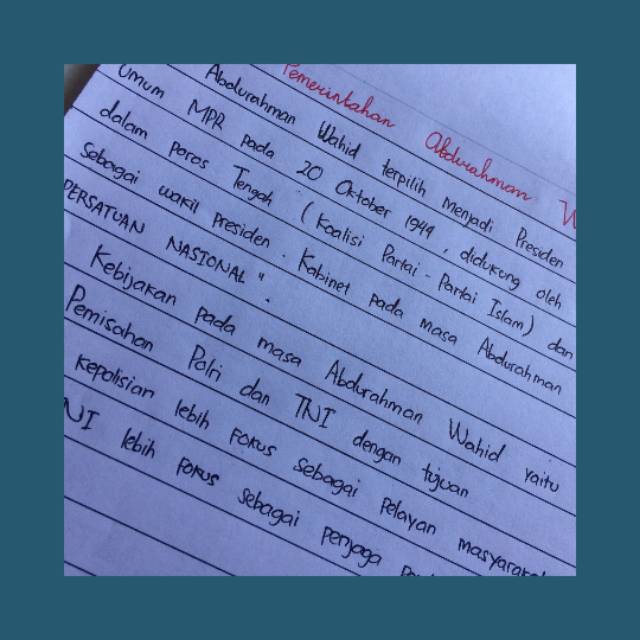 Pemerintahan Abdurahman
Abdurahman Wahid terpilih menjadi Presiden
Umum MPR pada 20 Oktober 1949, didukung oleh
dalam poros Tengah (Koalisi Partai-Partai Islam) dan
Sebagai wakil presiden. Kabinet pada masa Abdurahman
PERSATUAN NASIONAL".
Kebijakan pada masa Abdurahman Wahid yaitu
Pemisahan Polri dan TNI dengan tujuan
kepolisian lebih Fokus sebagai pelayan masyarakat
NI lebih Fokus sebagai penjaga